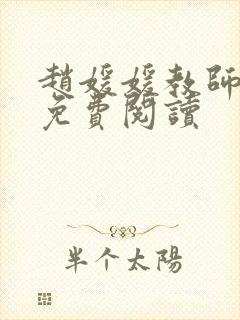 趙媛媛教師
免費閱讀
半个太陽